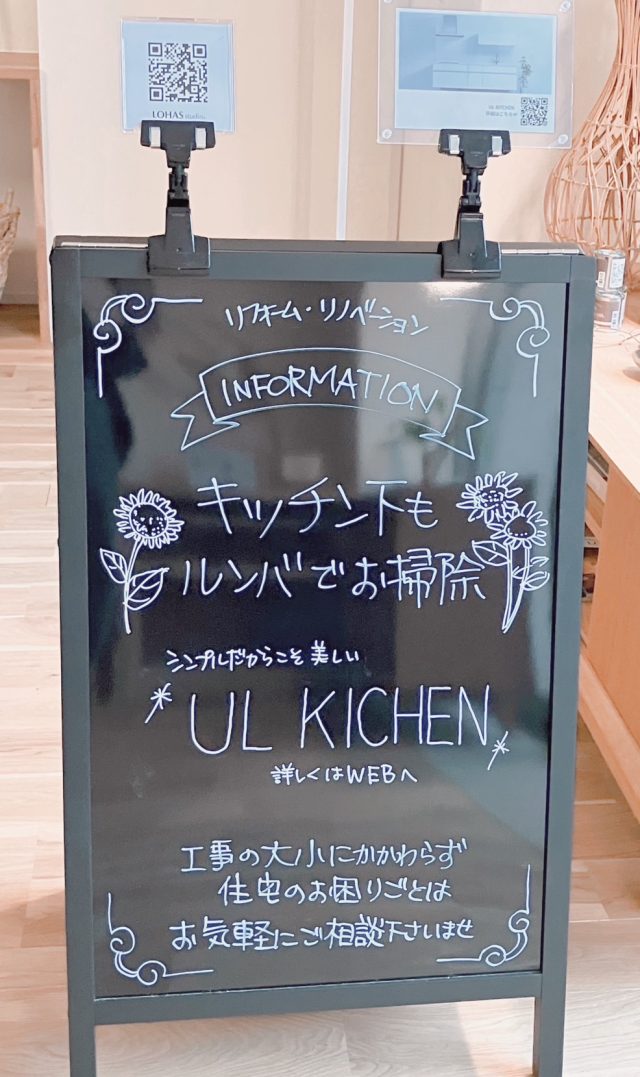 LOHAS studio.
UL KITCHEN
詳細はこちら☞
リフォーム・リノベーション
INFORMATION
キッチン下も
ルンバでお掃除
シンプルだからこそ美しい
UL KICHEN
詳しくはWEBへ
工事の大小にかかわらず
住宅のお困りごとは
お気軽にご相談下さいませ